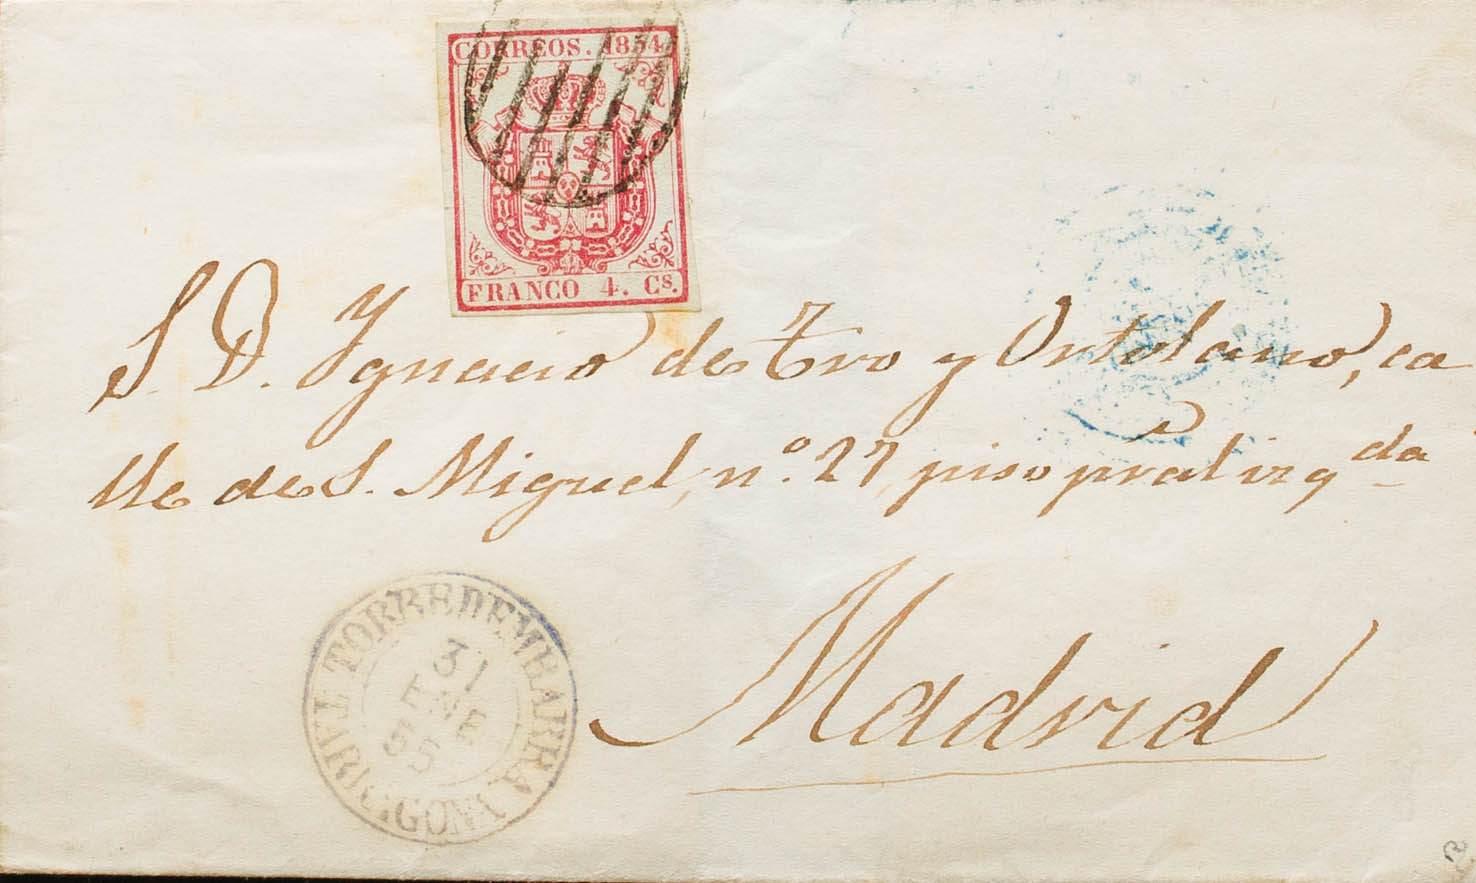 CORREOS. 1854
FRANCO 4. Cs.
S. D. Ygnacio de Tro y Ortolano, ca
lle de S. Miguel, n.º 27, piso pral izqda
Madrid
TORREDEMBARRA
31
ENE
TARRAGONA